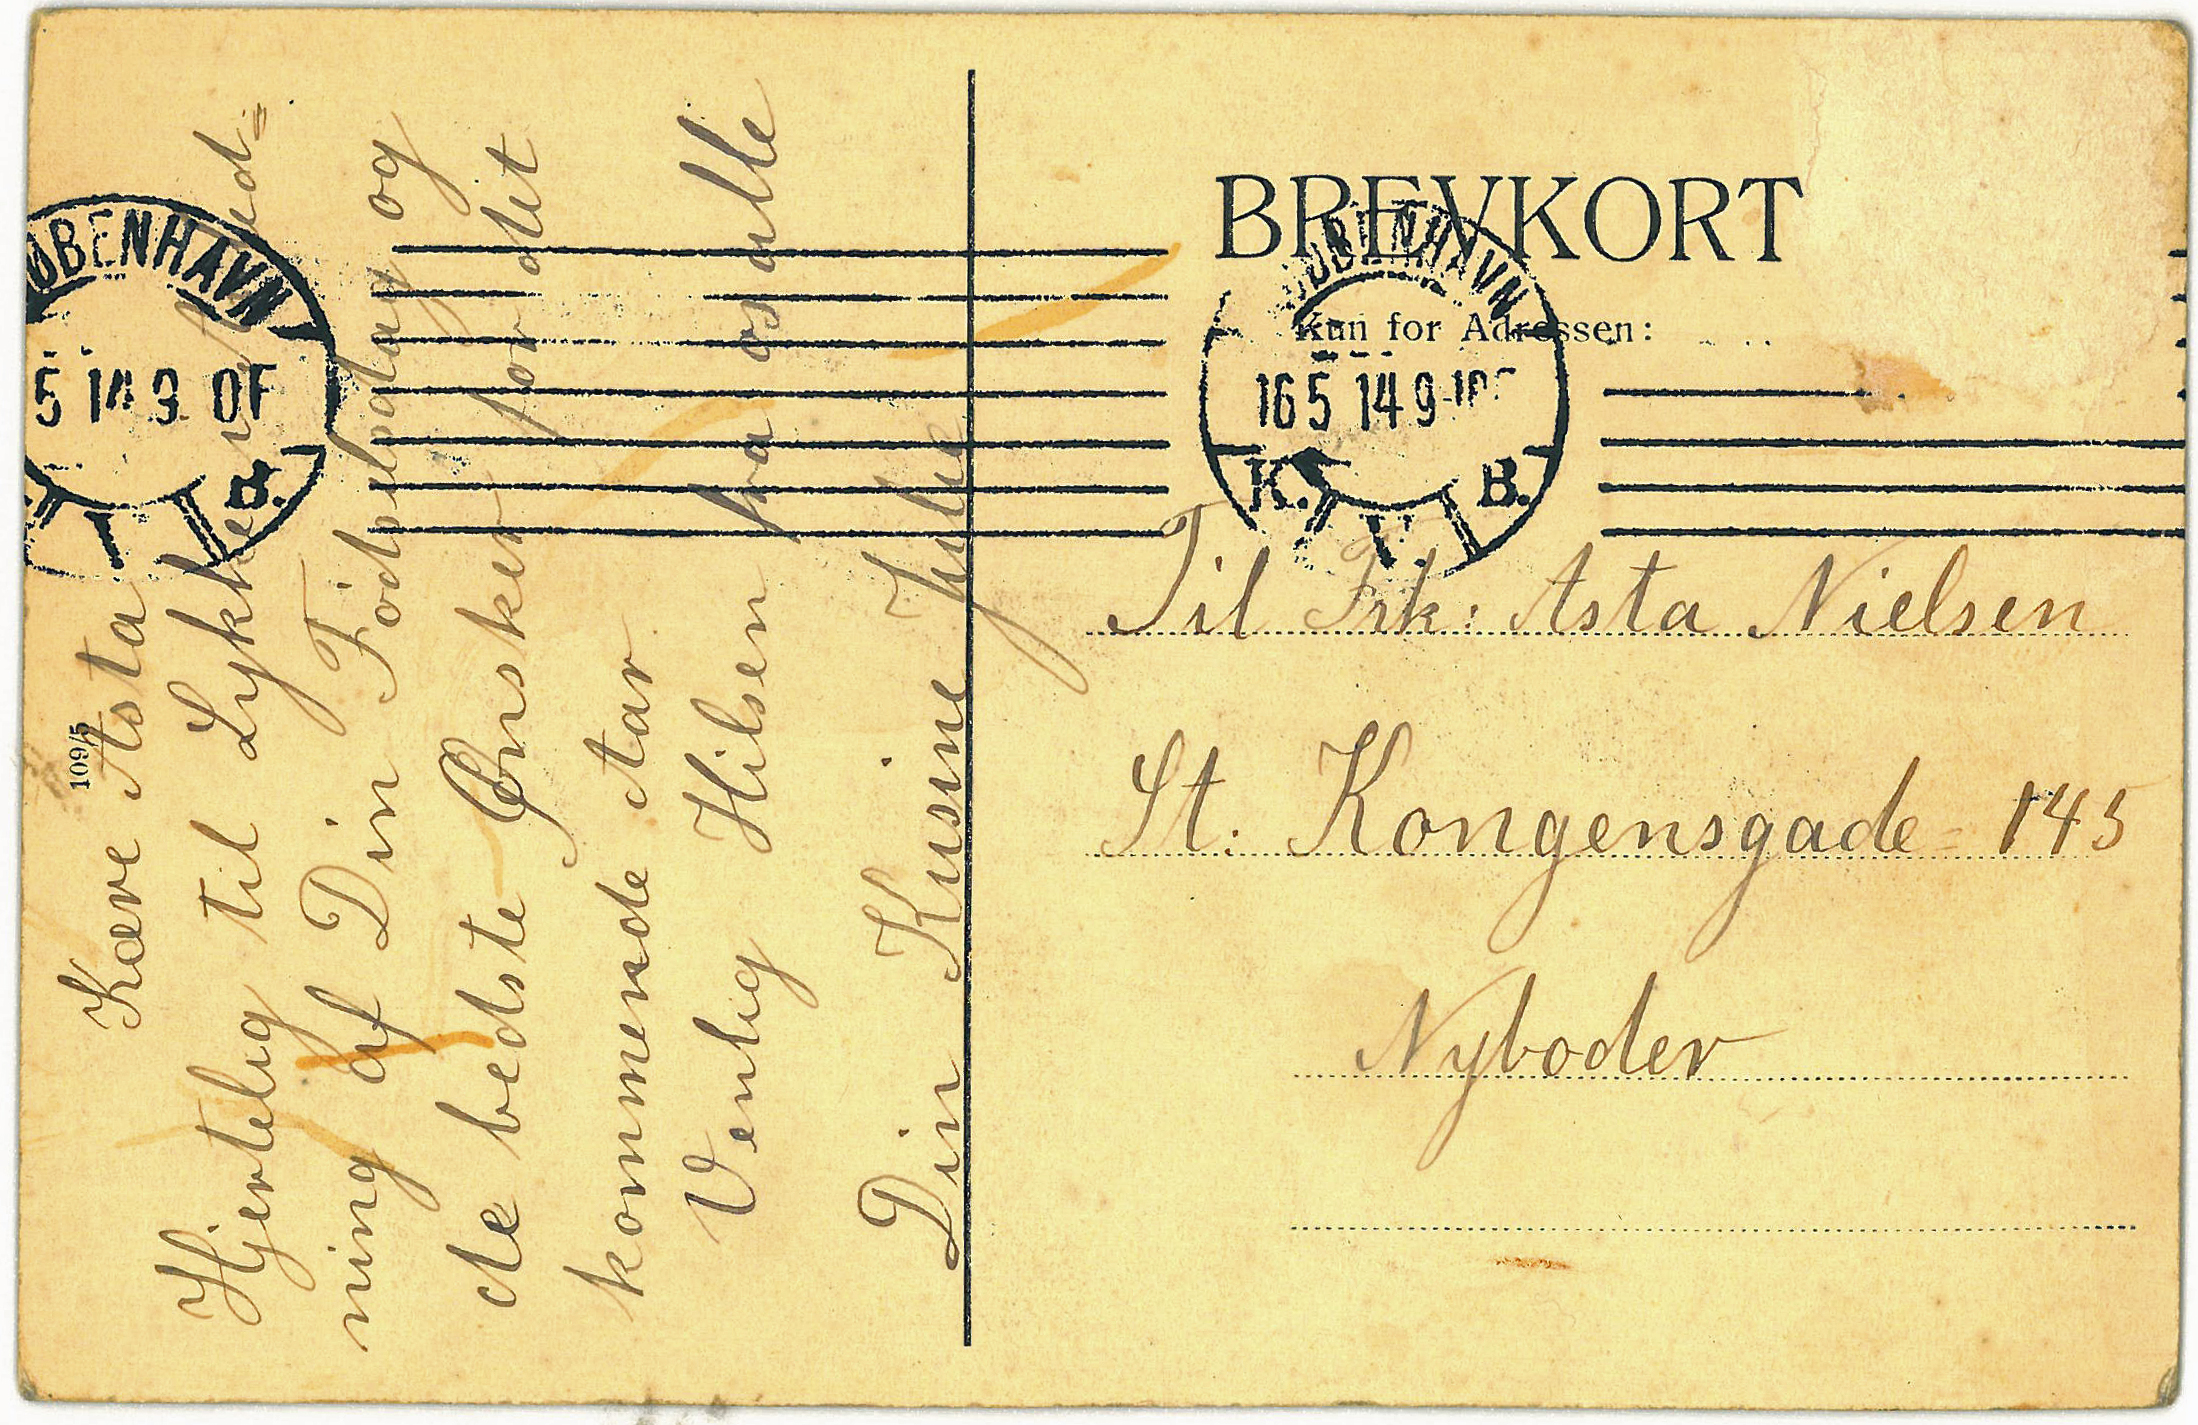 BREVKORT
Kun for Adressen:
KØBENHAVN
16 5 14 9-10F
K. V. B.
ØBENHAVN
5 14 9 0F
B.
109/5
Kære Asta
Hjertelig til Lykke med
ning af Din Fødselsdag og
de bedste Ønsker for det
kommende Aar
Venlig Hilsen fra os alle
Din Kusine
Til Frk: Asta Nielsen
St. Kongensgade 145
Nyboder